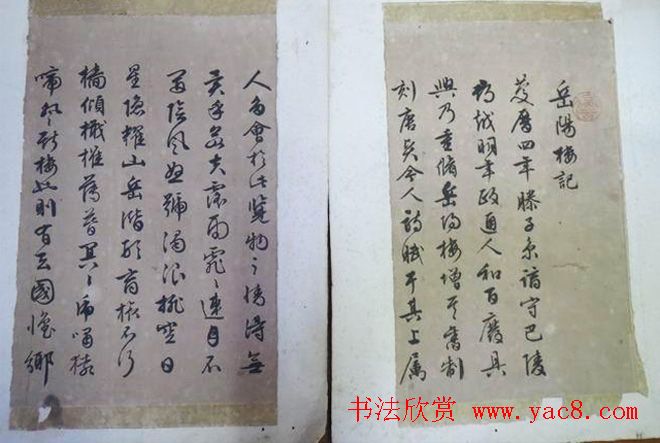 岳陽樓記
慶曆四年滕子京謫守巴陵
郡越明年政通人和百廢具
興乃重脩岳陽樓增其舊制
刻唐賢今人詩賦于其上屬
人多會於此覽物之情得無
異乎若夫霪雨霏〻連月不
開陰風怒號濁浪排空日
星隱耀山岳潛形商旅不行
檣傾檝摧薄暮冥〻虎嘯猿
啼登斯樓也則有去國懷鄉
书法欣赏 www.yac8.com